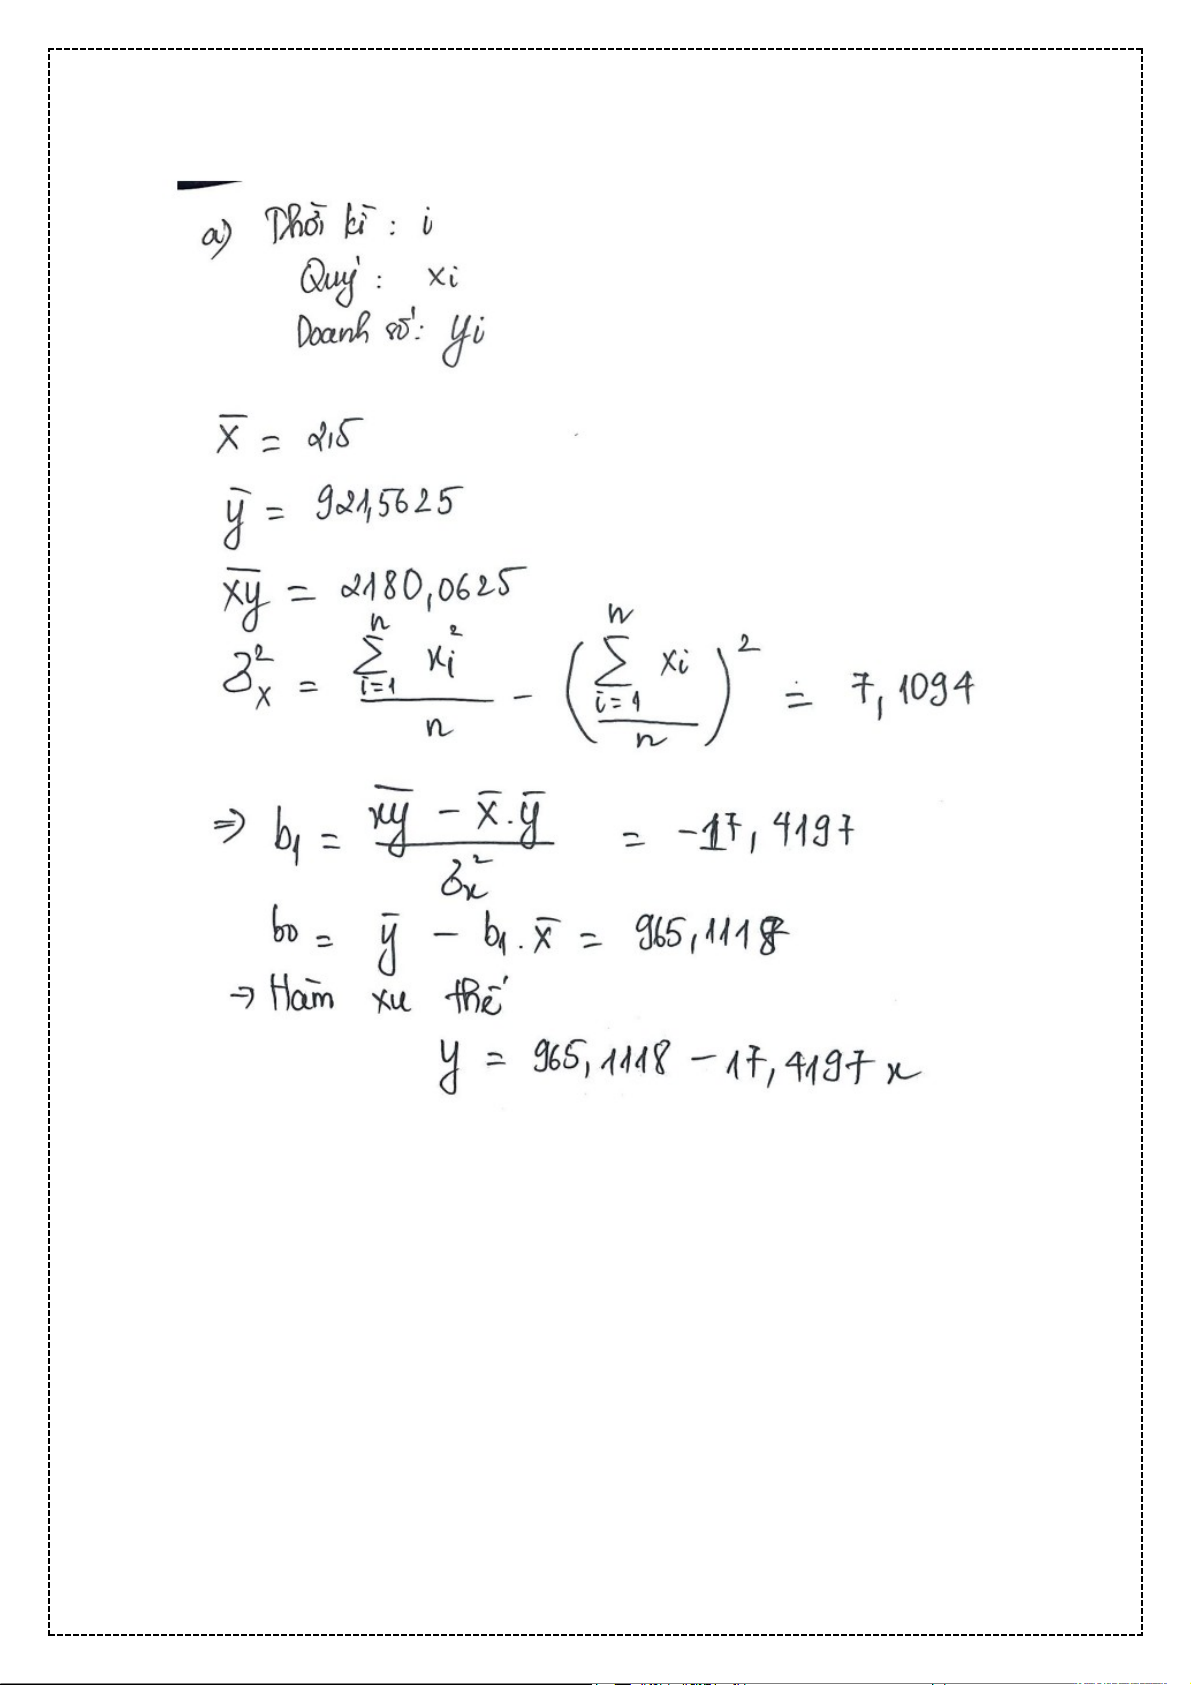 a) Thời kì : i
Quý : xi
Doanh số : yi
x̄ = 2,5
ȳ = 921,5625
x̅y̅ = 2180,0625
Ϭ²ₓ = (∑ⁿᵢ₌₁ xi²)/n − ((∑ⁿᵢ₌₁ xi)/n)² = 7,1094
⇒ b₁ = (x̅y̅ − x̄.ȳ)/Ϭₓ² = −17,4197
b0 = ȳ − b₁ . x̄ = 965,1118
→ Hàm xu thế
y = 965,1118 − 17,4197 x